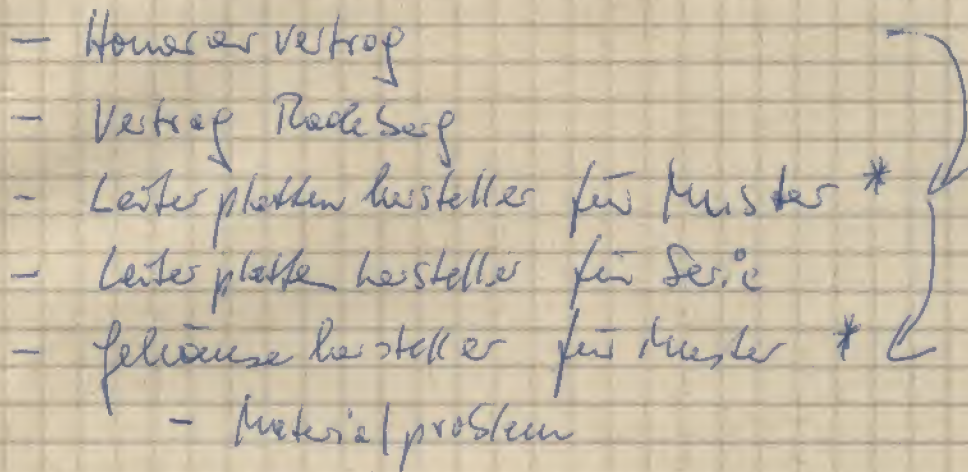 - Honorarvertrag
- Vertrag Radeberg
- Leiterplattenhersteller für Muster *
- Leiterplattenhersteller für Serie
- Gehäusehersteller für Muster *
- Materialproblem